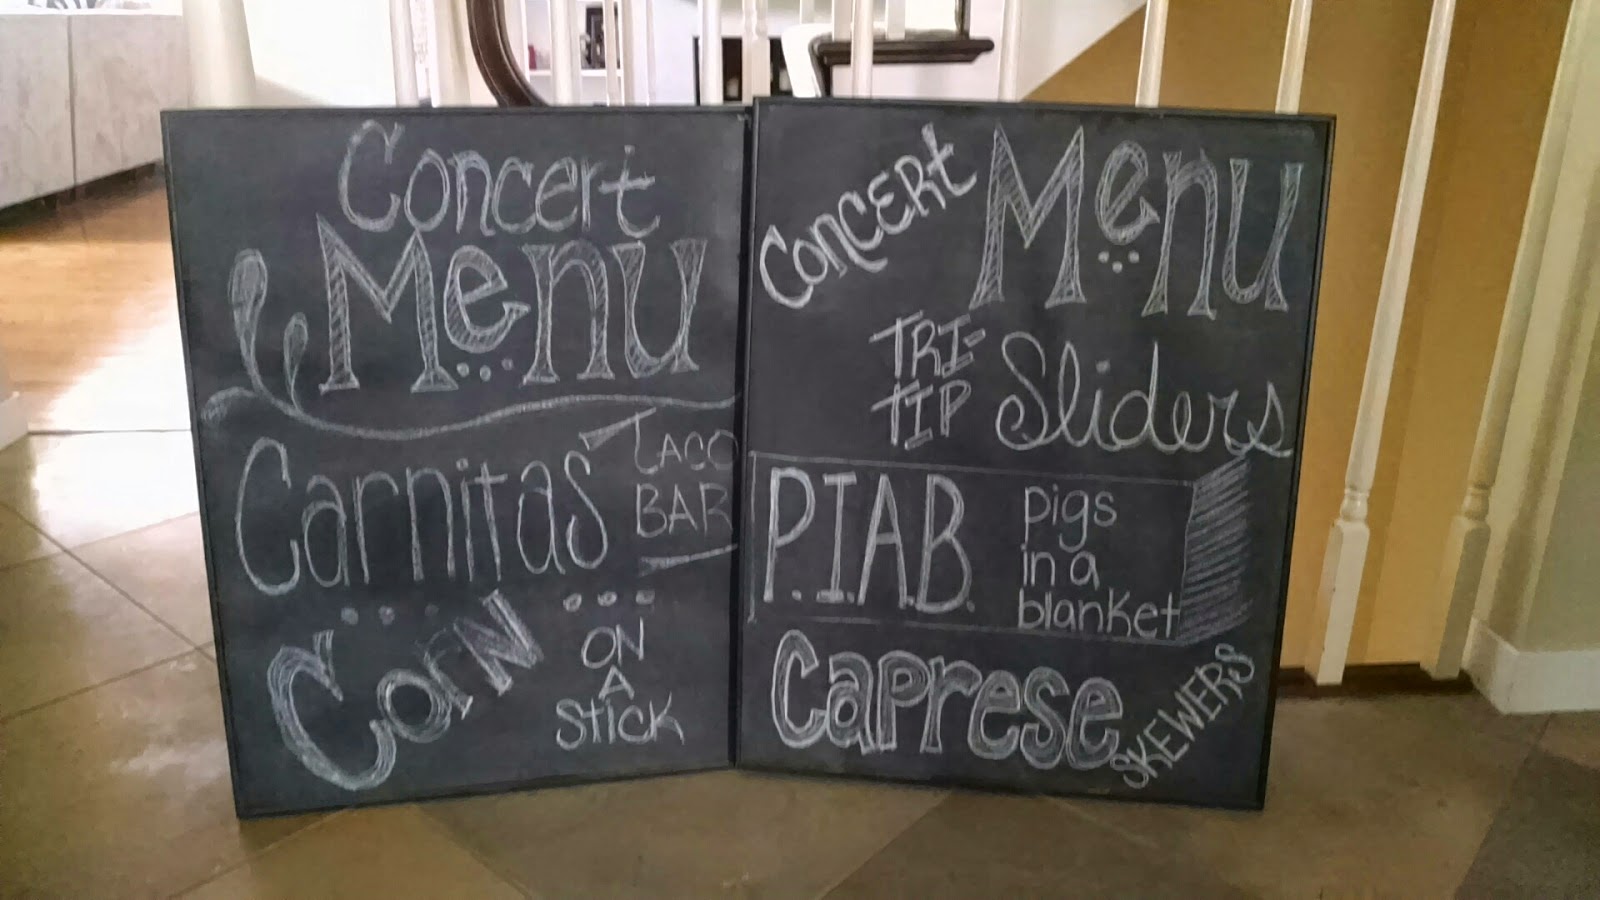 Concert
Menu
Carnitas
TACO
BAR
Corn
ON
A
Stick
Concert
Menu
TRI-
TIP
Sliders
P.I.A.B.
pigs
in a
blanket
Caprese
SKEWERS